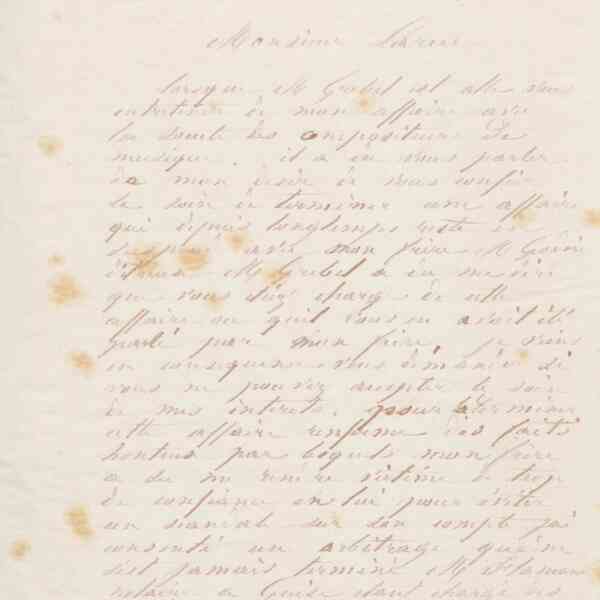 Monsieur
lorsque M Grebel est allé vous
entretenir de mon affaire avec
la société des compositeurs de
musique. il a du vous parler
de mon désir de vous confier
le soin de terminer une affaire
qui depuis longtemps reste en
avec mon frère M Godin
M Grebel a du me dire
que vous étiez chargé de cette
affaire ou qu'il vous en avait été
parlé par mon frère, je viens
en conséquence vous demander si
vous ne pouvez accepter le soin
de mes intérêts. pour terminer
cette affaire renferme des faits
honteux par lesquels mon frère
a du me rendre victime de trop
de confiance en lui pour éviter
un scandale sur son compte j'ai
consenti un arbitrage qui ne
s'est jamais terminé M Flamant
notaire à Guise étant chargé des